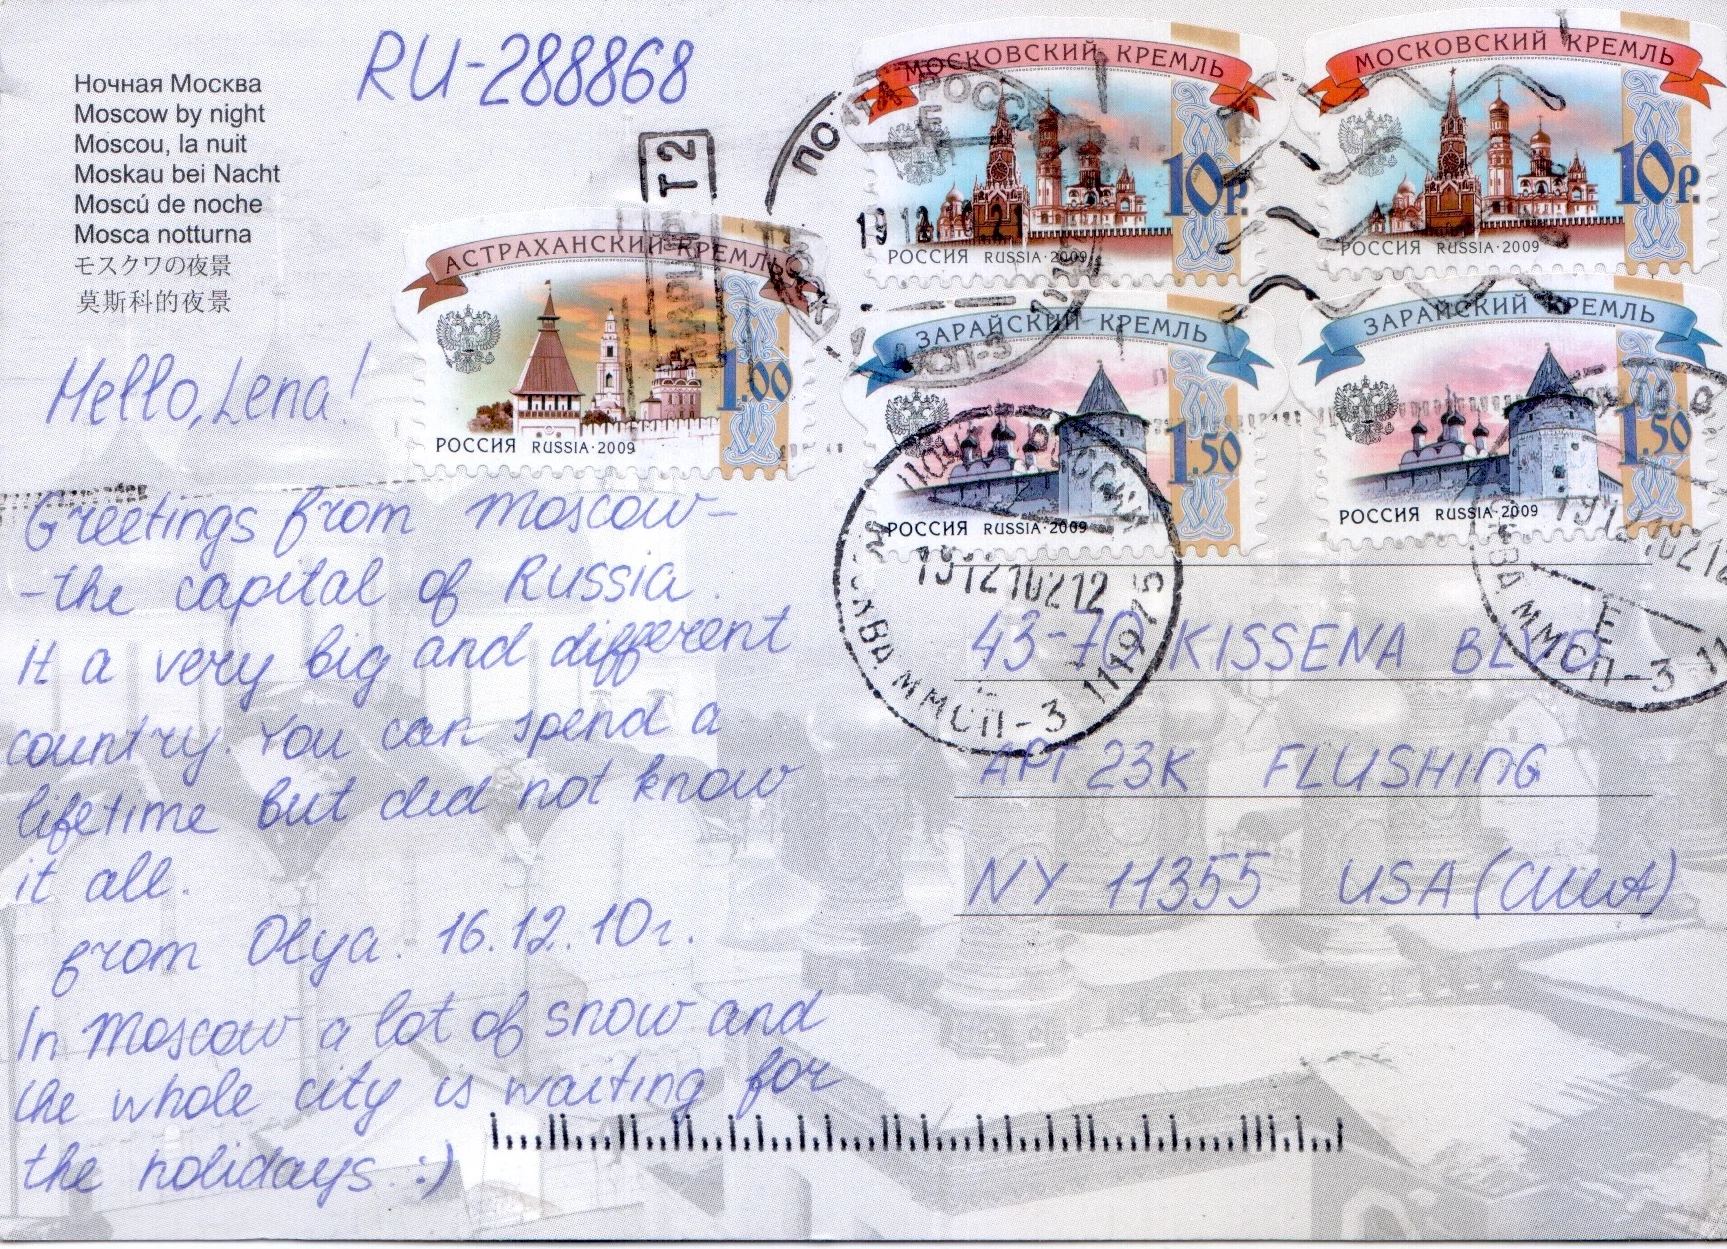 Ночная Москва
Moscow by night
Moscou, la nuit
Moskau bei Nacht
Moscú de noche
Mosca notturna
モスクワの夜景
莫斯科的夜景
RU-288868
Hello, Lena!
Greetings from Moscow-
-the capital of Russia.
It a very big and different
country. You can spend a
lifetime but did not know
it all.
from Olya. 16.12.10г.
In Moscow a lot of snow and
the whole city is waiting for
the holidays :)
T2
АСТРАХАНСКИЙ КРЕМЛЬ
1.00
РОССИЯ RUSSIA·2009
МОСКОВСКИЙ КРЕМЛЬ
10р.
РОССИЯ RUSSIA·2009
МОСКОВСКИЙ КРЕМЛЬ
10р.
РОССИЯ RUSSIA·2009
ЗАРАЙСКИЙ КРЕМЛЬ
1.50
РОССИЯ RUSSIA·2009
ЗАРАЙСКИЙ КРЕМЛЬ
1.50
РОССИЯ RUSSIA·2009
191210212
МОСКВА ММСП-3 111975
ММСП-3
43-70 KISSENA BLVD
APT 23K FLUSHING
NY 11355 USA (США)